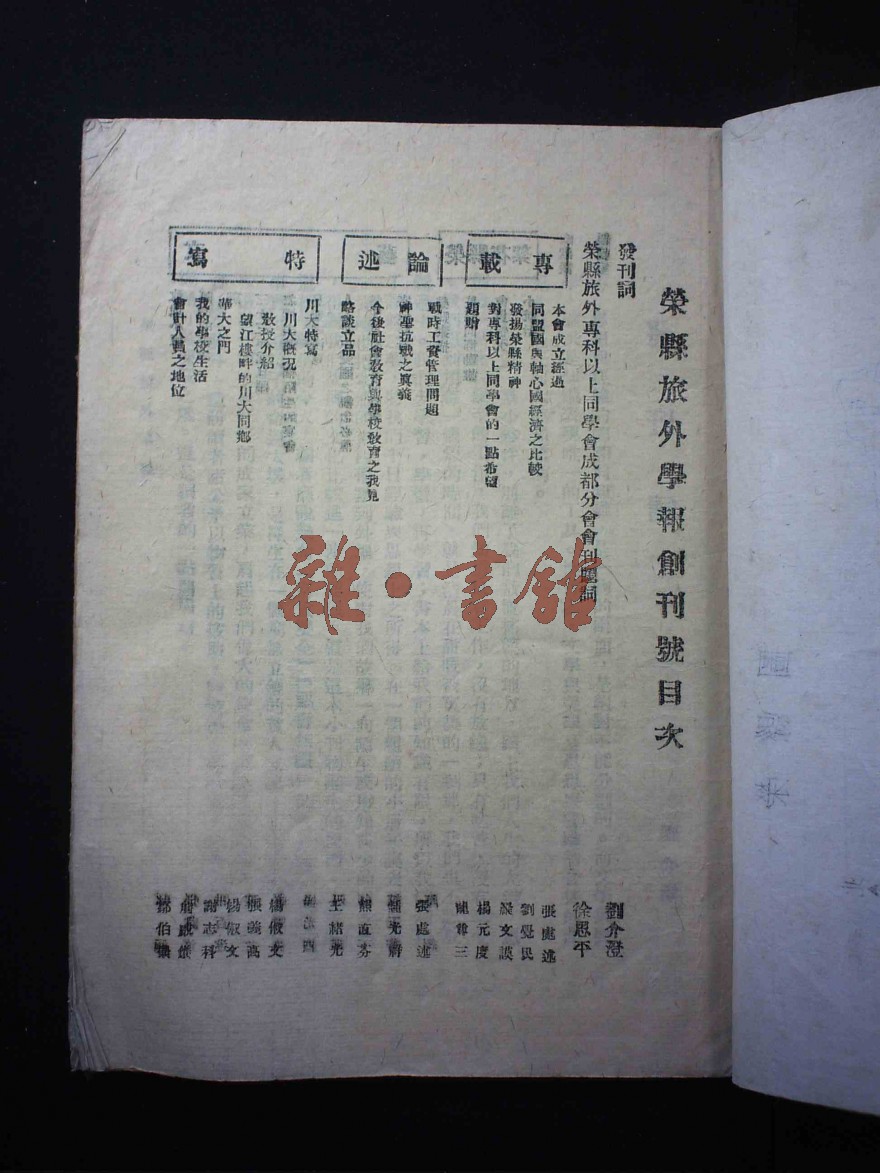 榮縣旅外學報創刊號目次
發刊詞
劉介澄
榮縣旅外專科以上同學會成都分會會刊題詞
徐思平
專載
本會成立經過
張處述
同盟國與軸心國經濟之比較
劉覺民
發揚榮縣精神
文謨
對專科以上同學會的一點希望
楊元度
題贈
尊三
論述
戰時工資管理問題
張處述
神聖抗戰之眞義
光
今後社會教育與學校教育之我見
熊直芬
略談立品
王緒光
特寫
川大特寫
川大概況
楊俶文
教授介紹
張義高
望江樓畔的川大同鄉
楊俶文
華大之門
謝志科
我的學校生活
會計人員之地位
伯
雜·書館